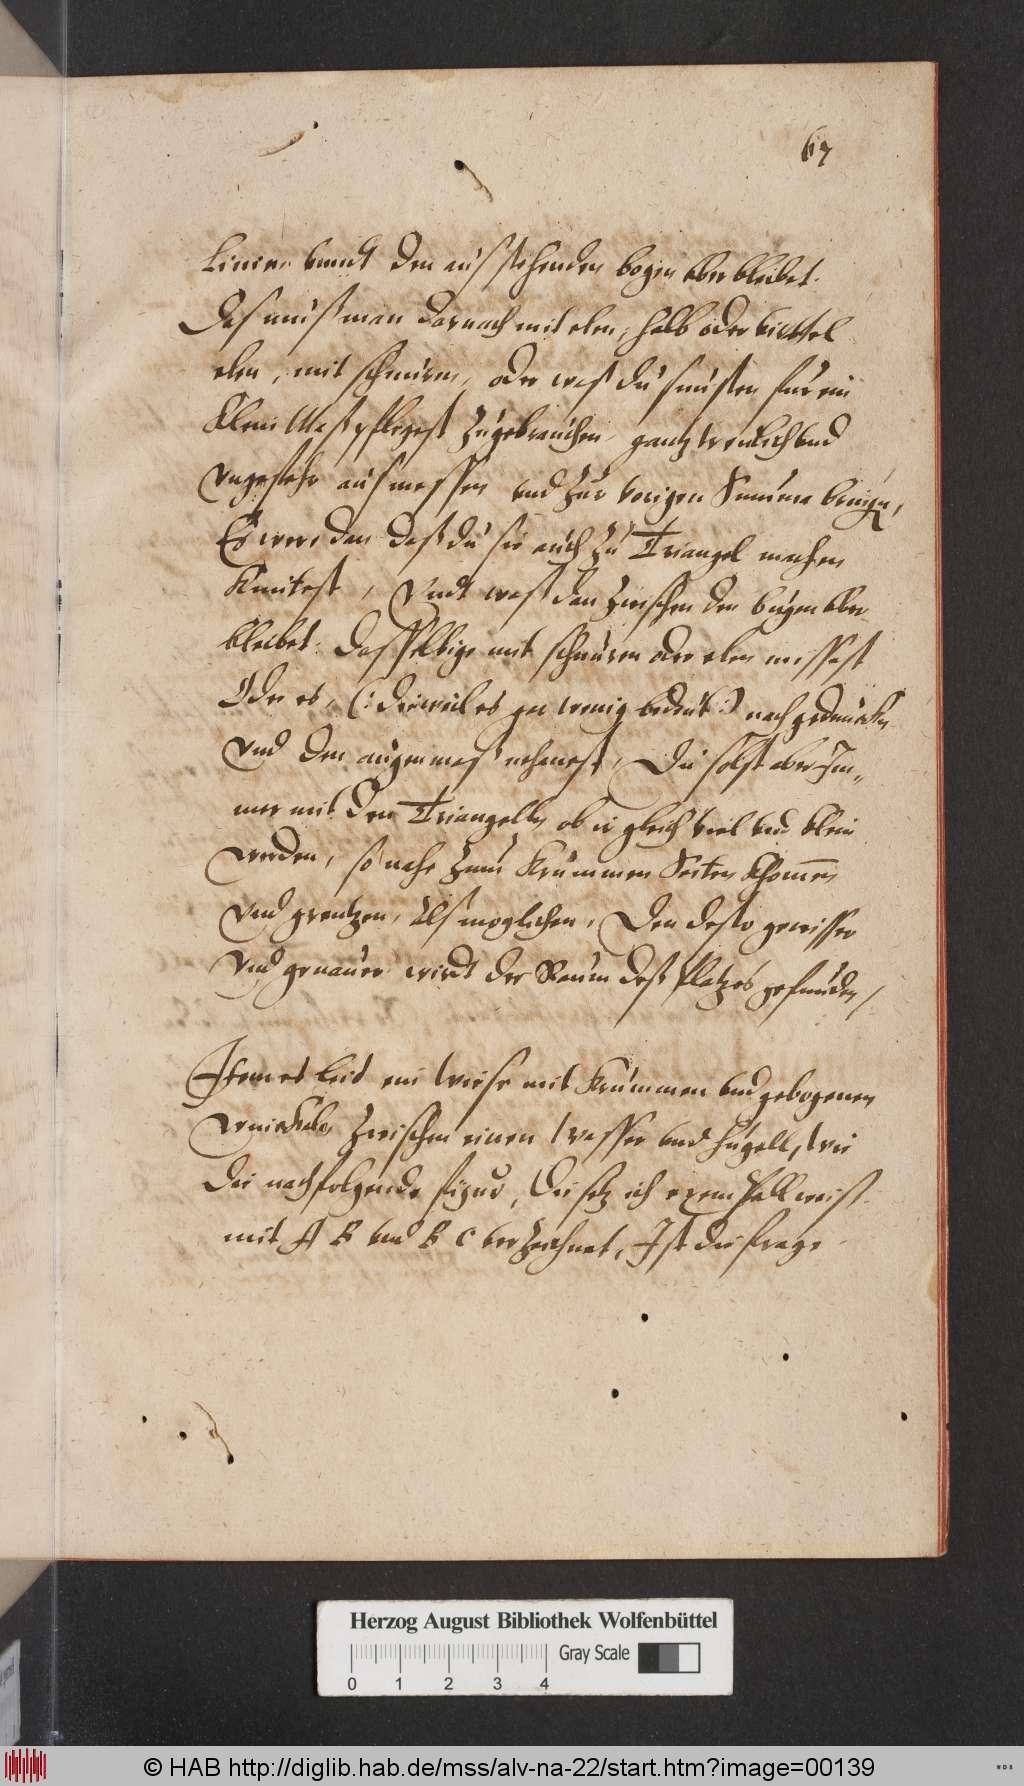 67
Linien vnndt den ausstehenden bogen vber bleibet.
Das mus man darnach mit elen, halb oder virttel
elen, mit schnuren, oder was du sunsten fur ein
klein Mas pflegest zugebrauchen gantz vnd
vngefehr ausmessen vnd zur vorigen Summa bringen,
Es were dan das du sie auch zu Triangel machen
kuntest, Vndt was dan zwischen den bugen vber
bleibet. Dasselbige mit schnuren oder elen messest
Oder es, (: dieweil es gar wenig bedeut :) nach gedencken
Vnd den augenmas nehmest, Du solst aber Im,,
mer mit den Triangelln ob ir gleich viel vnd klein
werden, so nahe zum krummen Seiten khommen
vnd grentzen, Als moglichen, Den desto gewisser
vnd genauer wirdt der Raum des Platzes gefunden,
Item es leid ein Wiese mit krummen vnd gebogenen
winckeln zwischen einen Wasser vnd hugell, wie
die nachfolgende figur, Die setz ich exempell weist
mit A B vnd B C verzeichnet, Ist die frage
Herzog August Bibliothek Wolfenbüttel
Gray Scale
0 1 2 3 4
© HAB http://diglib.hab.de/mss/alv-na-22/start.htm?image=00139